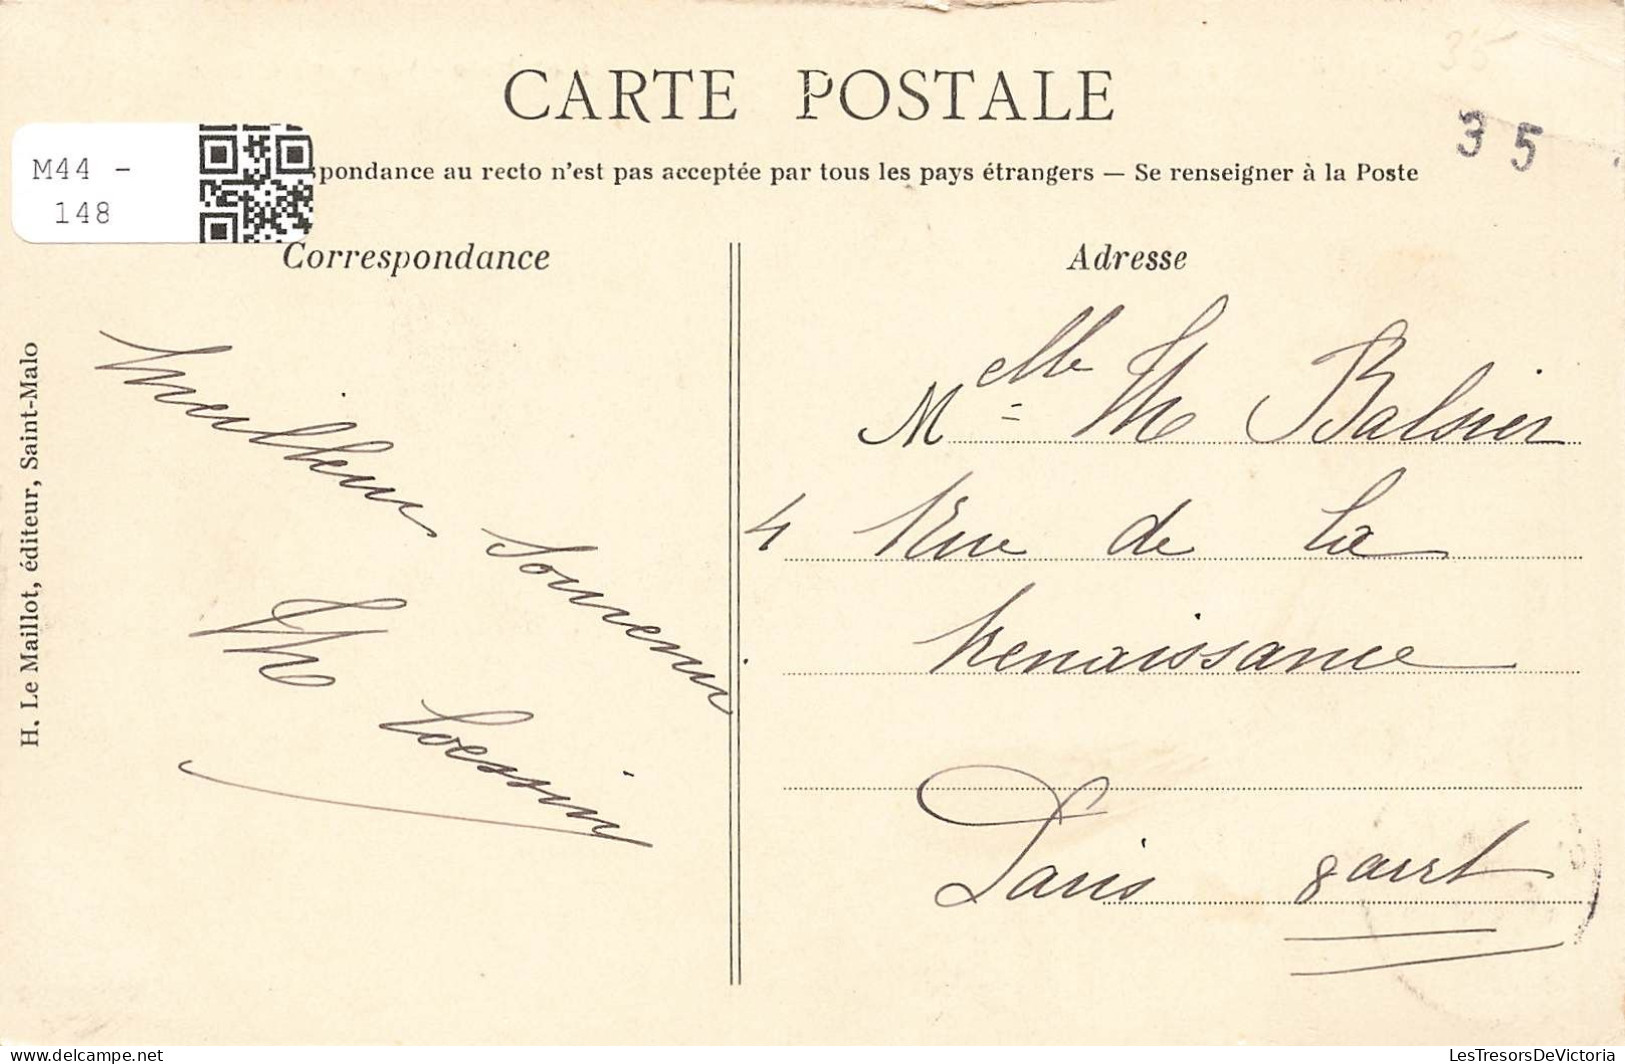 CARTE POSTALE
35
3 5
M44 -
148
spondance au recto n'est pas acceptée par tous les pays étrangers — Se renseigner à la Poste
Correspondance
Adresse
H. Le Maillot, éditeur, Saint-Malo
Meilleur Souvenir
Th
Melle Th Balsier
4 Rue de la
Renaissance
Paris 8 arrt
delcampe.net
LesTresorsDeVictoria